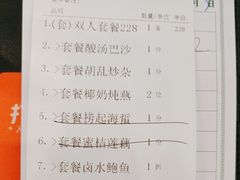 品项 数量/单位 单价
1.(套)双人套餐228 1 套 228
2.>套餐酸汤巴沙 1 份
3.>套餐胡乱炒杂 1 份
4.>套餐椰奶炖燕 2 位
5.>套餐捞起海蜇 1 份
6.>套餐蜜桔莲藕 1 份
7.>套餐卤水鲍鱼 1 例